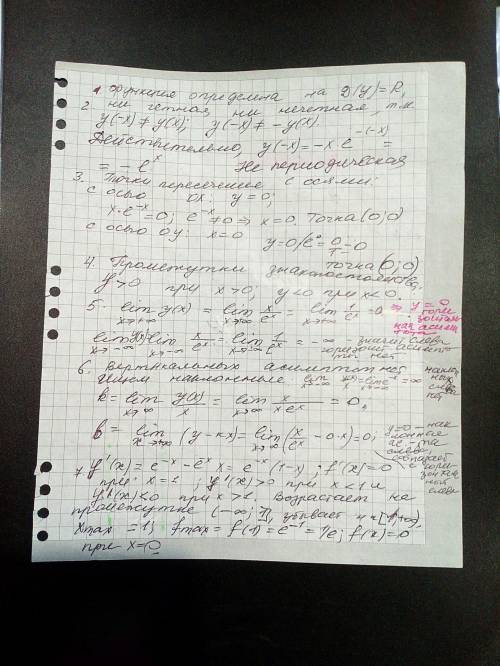 1. Функция определена на D(y)=R,
2. ни четная, ни нечетная, т.к
y(-x)≠y(x); y(-x)≠ -y(x).
Действительно, y(-x)=-x·e^{-(-x)} =
= - e^x Не периодическая
3. Точки пересечения с осями:
с осью ox: y=0;
x·e^{-x}=0; e^{-x}≠0 ⇒ x=0. Точка (0;0)
с осью оу: x=0 y=0/e^0=0/1=0
точка (0;0)
4. Промежутки знакопостоянства,
y>0 при x>0; y<0 при x<0.
5. lim y(x) = lim x/e^x = lim 1/e^x =0 ⇒ y=0
x→+∞ x→+∞ x→+∞
гори
зонталь
ная асимп
тота
lim y(x)= lim x/e^x = lim 1/e^x = -∞ значит слева
x→-∞ x→-∞ x→-∞
горизонт асимпто
ты нет
6. Вертикальных асимптот нет
Ищем наклонные
k = lim y(x)/x = lim x/(x e^x) = 0,
b = lim (y-kx) = lim (x/e^x - 0·x)=0;
7. y'(x) = e^{-x} - e^{-x} x = e^{-x}(1-x); f'(x)=0
при: x=1; y'(x)>0 при x<1 и
y'(x)<0 при x>1. Возрастает на
промежутке (-∞; 1], убывает на [1;+∞),
x max = 1; f max = f(1) = e^{-1} = 1/e; f(x)=0
при x=0